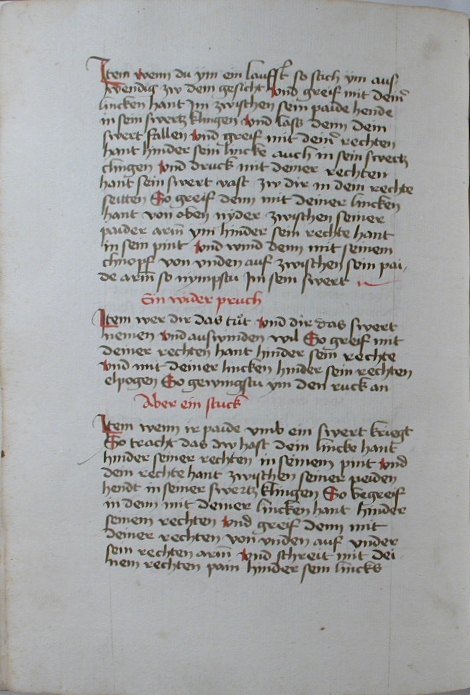 Item wenn du ym ein lauffst so stich ym aus
wendig zw dem gesicht Vnd greif mit deiner
lincken hant Im zwischen sein paide hende
in sein swertz klingen Vnd lass denn dein
swert fallen Vnd greif mit deiner rechten
hant hinder sein lincke auch in sein swertz
clingen Vnd druck mit deiner rechten
hant sein swert vast zw dir in dein rechte
seitten So greif denn mit deiner lincken
hant von oben nyder zwischen seiner
paider arm ym hinder sein rechte hant
in sein pint Vnd wind denn mit seinem
chnopf von vnden auf zwischen sein pai-
de arm so nympstu Im sein swert
Ein wider pruch
Item wer dir das tut Vnd dir das swert
nemen Vnd auswinden wil So greif mit
deiner rechten hant hinder sein rechte
Vnd mit deiner lincken hinder sein rechten
elpogen So gewingstu ym den ruck an
Aber ein stuck
Item wenn ir paide vmb ein swert kriegt
So tracht das dw hast dein lincke hant
hinder seiner rechten in seinem pint Vnd
dein rechte hant zwischen seiner peiden
hendt in seiner swertz klingen So begreif
in denn mit deiner lincken hant hinder
seinem rechten Vnd greif denn mit
deiner rechten von vnden auf vnder
sein rechten arm Vnd schreit mit dei-
nem rechten pain hinder sein lincks